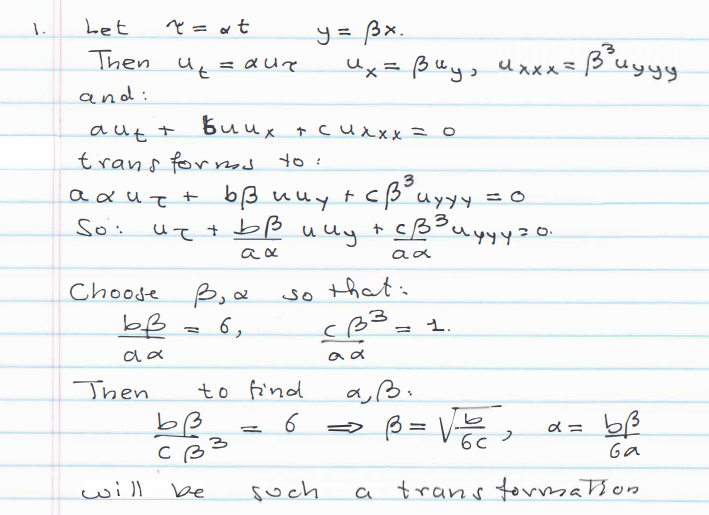 1. Let τ = αt y = βx.
Then u_t = αu_τ u_x = βu_y, u_xxx = β³u_yyy
and:
au_t + buu_x + cu_xxx = 0
transforms to:
aαu_τ + bβuu_y + cβ³u_yyy = 0
So: u_τ + bβ/aα uu_y + cβ³/aα u_yyy = 0.
Choose β, α so that:
bβ/aα = 6, cβ³/aα = 1.
Then to find α, β.
bβ/cβ³ = 6 ⟹ β = √(b/6c), α = bβ/6a
will be such a transformation